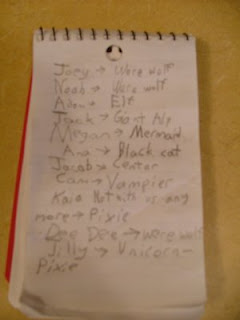 Joey → Were wolf
Noah → Were wolf
→ Elf
Jack →
Megan → Mermaid
Ana → Black cat
Jacob →
Cam → Vampier
Kaia Not any
more → Pixie
Dee Dee → were wolf
Jilly → Unicorn-
Pixie